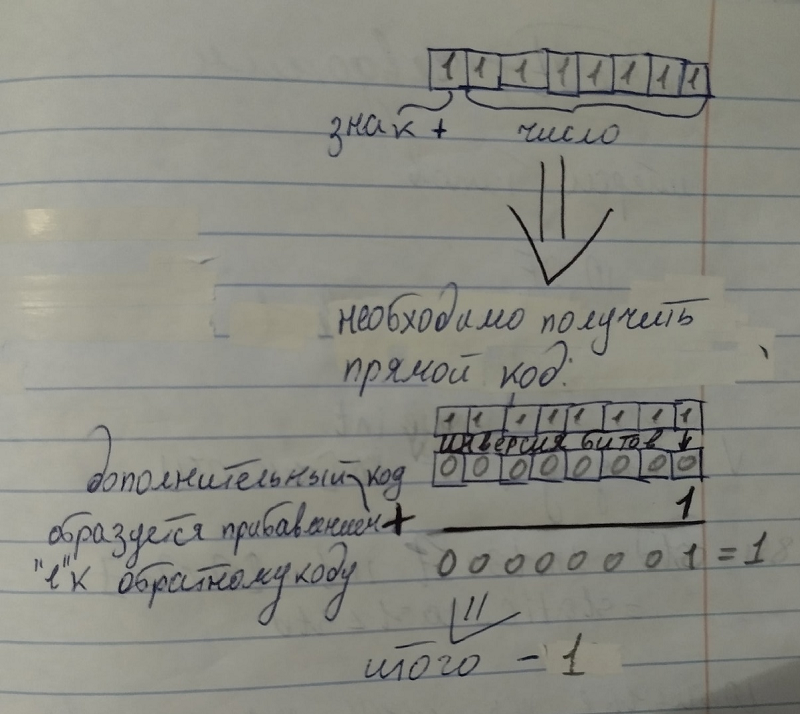 1 1 1 1 1 1 1 1
знак + число
необходимо получить
прямой код:
1 1 1 1 1 1 1 1
инверсия битов ↓
0 0 0 0 0 0 0 0
дополнительный код
образуется прибавлением + 1
"1" к обратному коду 0 0 0 0 0 0 0 1 = 1
итого - 1